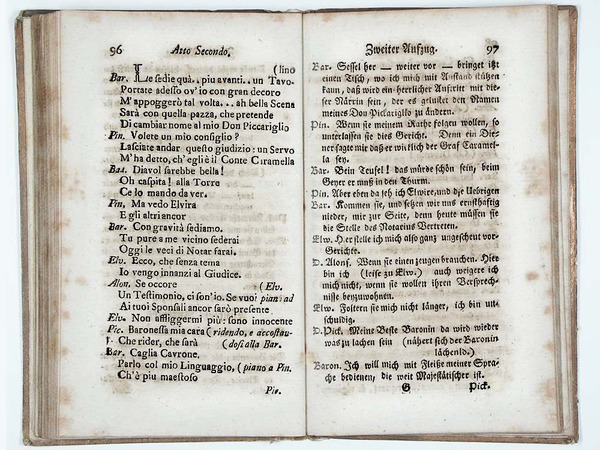 96
Atto Secondo.
(lino
Bar. Le sedie quà.. piu avanti.. un Tavo-
Portate adesso ov'io con gran decoro
M'appoggerò tal volta... ah bella Scena
Sarà con quella pazza, che pretende
Di cambiar nome al mio Don Piccariglio
Pin. Volete un mio consiglio?
Lasciate andar questo giudizio: un Servo
M'ha detto, ch'egli è il Conte Ciramella
Baa. Diavol sarebbe bella!
Oh caspita! alla Torre
Ce lo mando da ver.
Pin, Ma vedo Elvira
E gli altri ancor
Bar. Con gravità sediamo.
Tu pure a me vicino sederai
Oggi le veci di Notar farai.
Elv. Ecco, che senza tema
Io vengo innanzi al Giudice.
Alon. Se occore (Elv.
Un Testimonio, ci son'io. Se vuoi pian: ad
Ai tuoi Sponsali ancor sarò presente
Elv. Non affliggermi più: sono innocente
Pic. Baronessa mia cara (ridendo, e accostau-
Che rider, che sarà (dosi alla Bar.
Bar. Caglia Cavrone.
Parlo col mio Linguaggio, (piano a Pin.
Ch'è piu maestoso
Pic.
Zweiter Aufzug.
97
Bar. Sessel her — weiter vor — bringet itzt
einen Tisch, wo ich mich mit Anstand stützen
kann, daß wird ein herrlicher Auftritt mit die-
ser Närrin sein, der es gelüstet den Namen
meines Don Piccariglo zu ändern.
Pin. Wenn sie meinem Rathe folgen wollen, so
unterlassen sie dies Gericht. Denn ein Die-
ner sagte mir daß er wirklich der Graf Caramel-
la sey.
Bar. Bein Teufel! das würde schön sein, beim
Geyer er muß in den Thurm.
Pin. Aber eben da seh ich Elwire, und die Uebrigen
Bar. Kommen sie, und setzen wir uns ernsthaftig
nieder, mir zur Seite, denn heute müssen sie
die Stelle des Notarius Vertretten.
Elw. Her stelle ich mich also ganz ungescheut vor-
Gerichte.
D. Alons. Wenn sie einen zeugen brauchen. Hier
bin ich (leise zu Elw.) auch weigere ich
mich nicht, wenn sie wollen ihren Versprech-
nisse beyzuwohnen.
Elw. Foltern sie mich nicht länger, ich bin un-
schuldig.
D. Pick. Meine Beste Baronin da wird wieder
was zu lachen sein (nähert sich der Baronin
lächenld.)
Baron. Ich will mich mit Fleiße meiner Spra-
che bedienen, die weit Majestätischer ist.
G Pick.